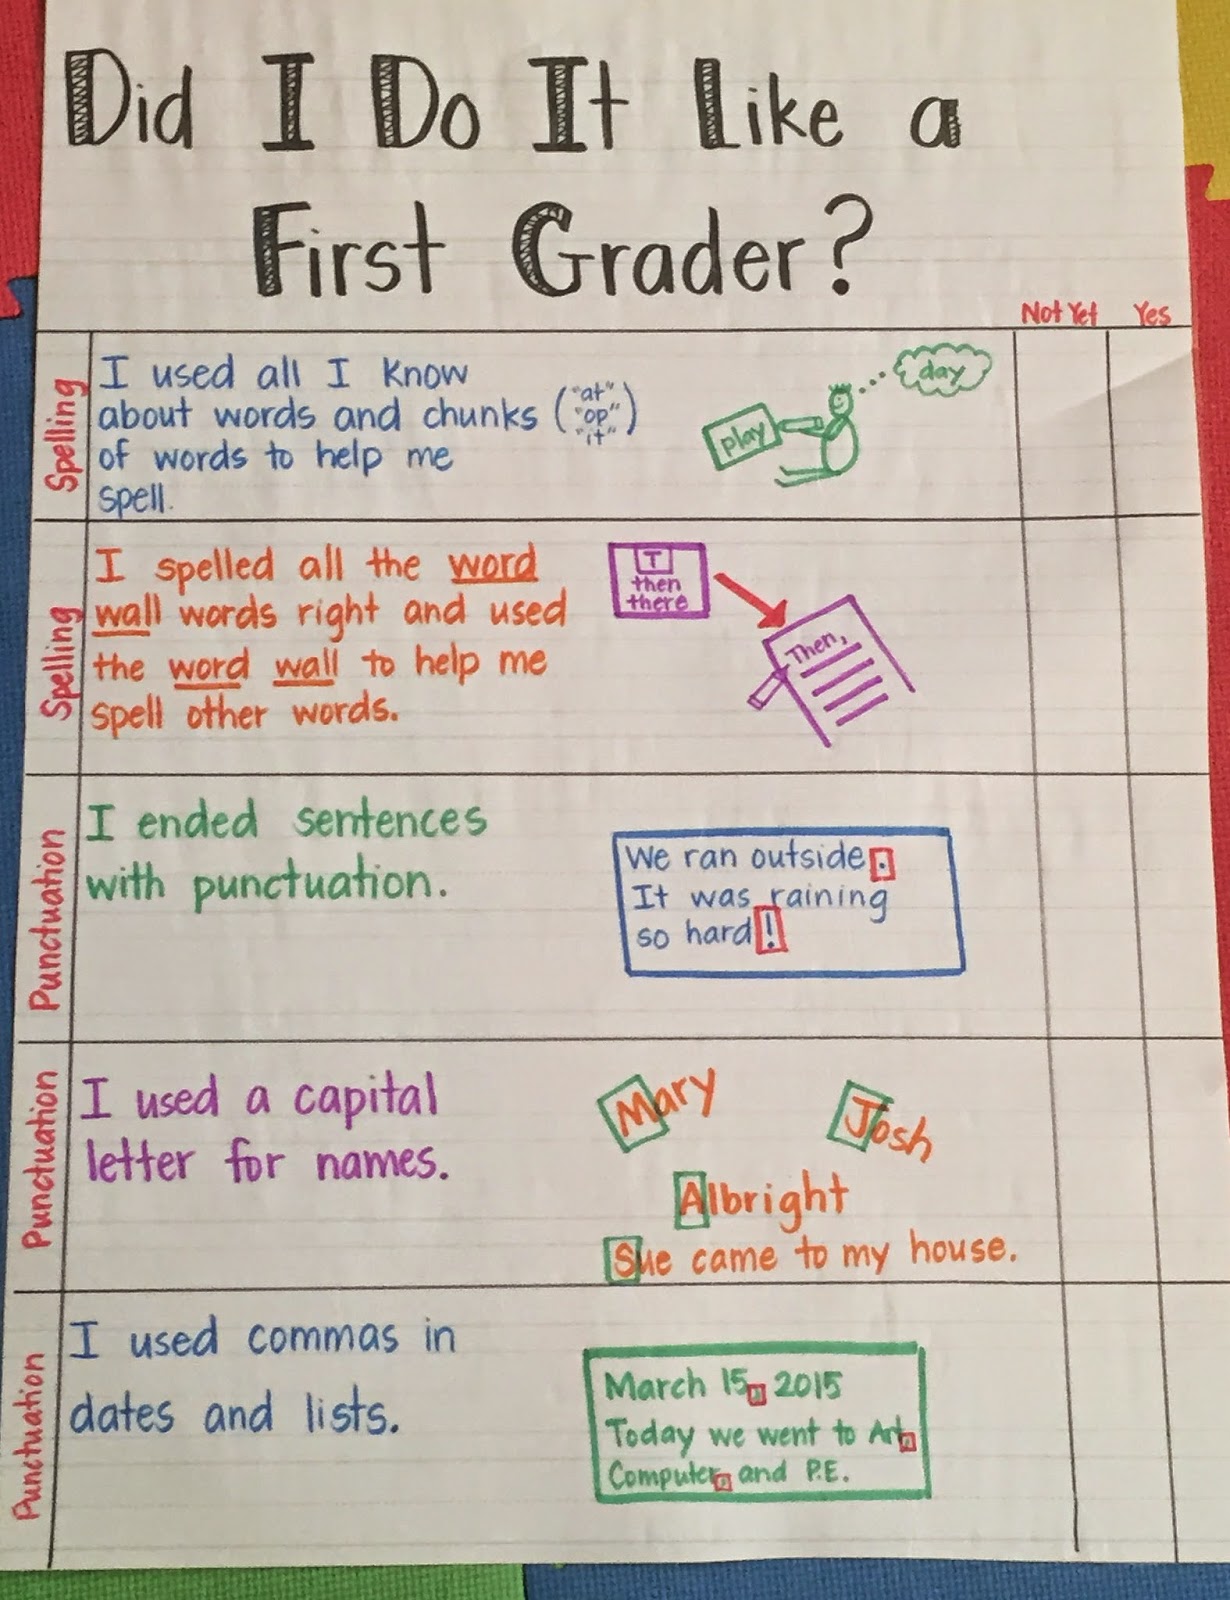 Did I Do It Like a
First Grader?
Not Yet Yes
Spelling
I used all I know
about words and chunks
of words to help me
spell.
"at"
"op"
"it"
play
day
Spelling
I spelled all the word
wall words right and used
the word wall to help me
spell other words.
T
then
there
Then,
Punctuation
I ended sentences
with punctuation.
We ran outside.
It was raining
so hard!
Punctuation
I used a capital
letter for names.
Mary
Josh
Albright
Sue came to my house.
Punctuation
I used commas in
dates and lists.
March 15, 2015
Today we went to Art,
Computer, and P.E.